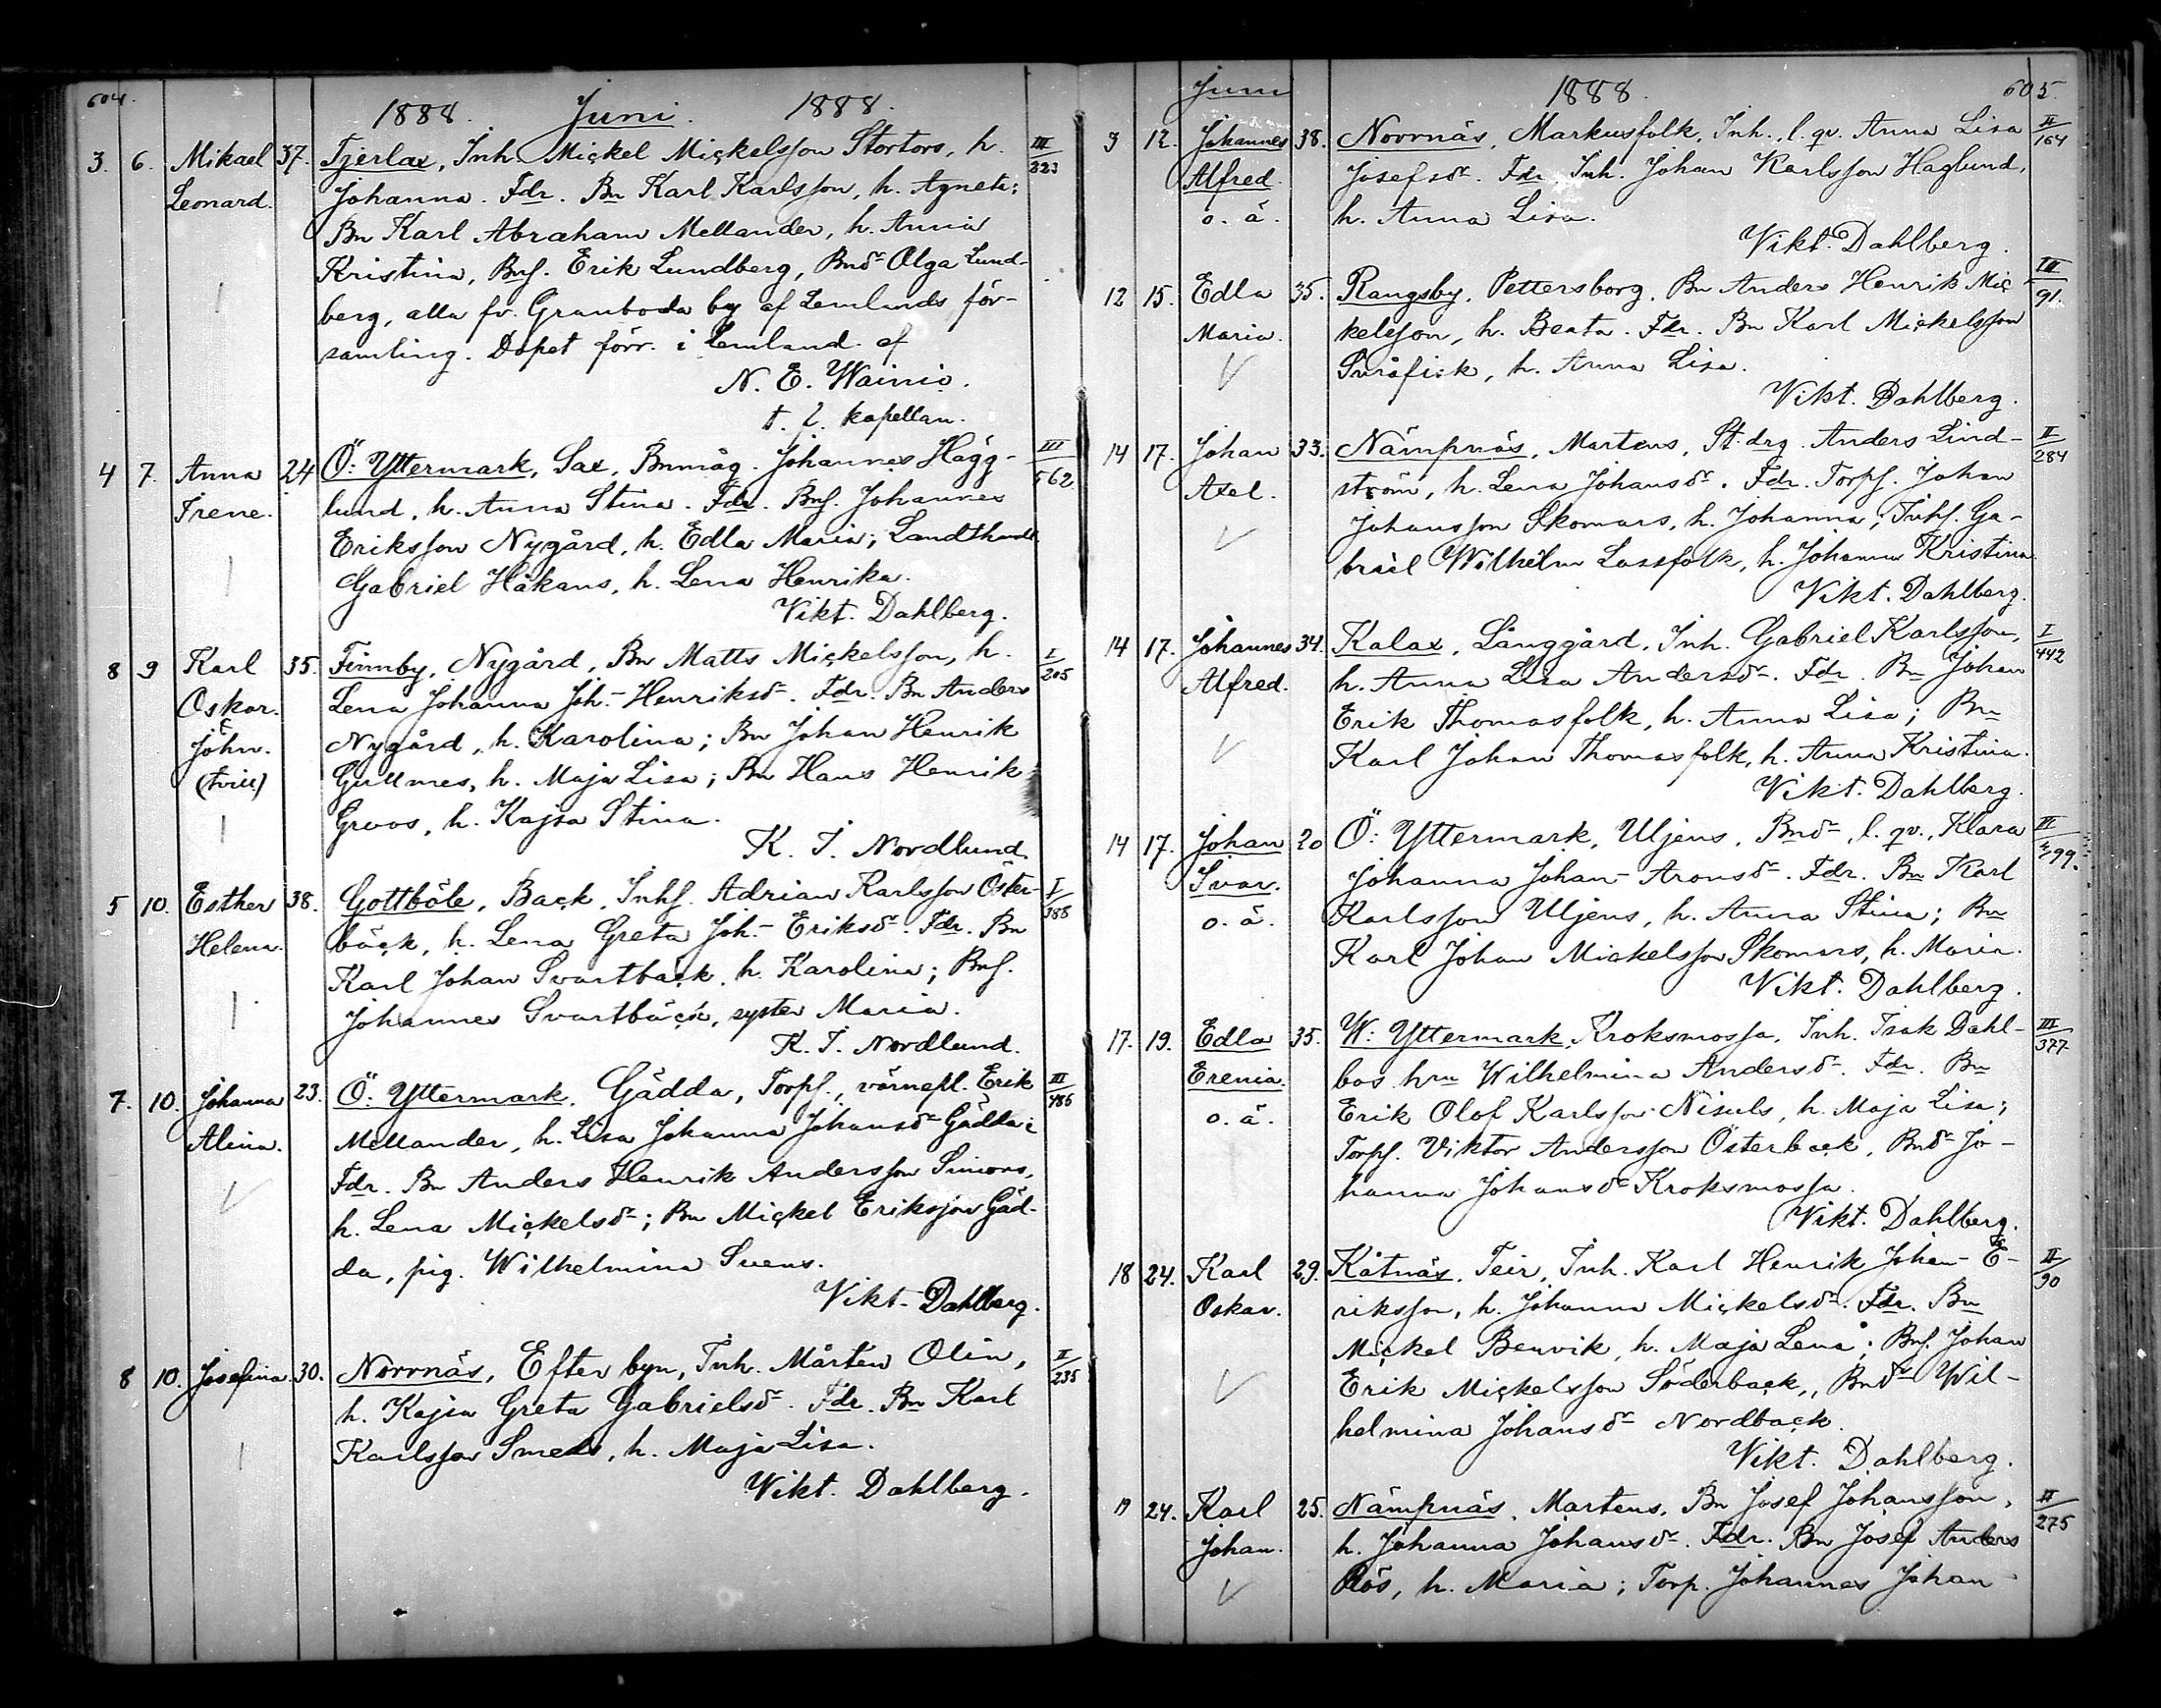 604.
1888. Juni. 1888.
3. 6. Mikael 37. Tjerlax, Inh. Mickel Mickelsson Stortors, h. III/223
Leonard. Johanna. Fdr. Bn Karl Karlsson, h. Agneta;
Bn Karl Abraham Mellander, h. Anna
Kristina, Bnf. Erik Lundberg, Bndr Olga Lund-
berg, alla fr. Granboda by af Lemlands för-
samling. Dopet förr. i Lemland af
N. E. Wainio.
t. f. kapellan.
4 7. Anna 24 Ö: Yttermark, Sax, Bnmåg. Johannes Hägg- III/562
Irene. lund, h. Anna Stina. Fdr. Bnf. Johannes
Eriksson Nygård, h. Edla Maria; Landthandl.
Gabriel Håkans, h. Lena Henrika.
Vikt. Dahlberg.
8 9 Karl 35. Finnby, Nygård, Bn Matts Mickelsson, h. I/205
Oskar. Lena Johanna Joh.- Henriksdr. Fdr. Bn Anders
John. Nygård, h. Karolina; Bn Johan Henrik
(trill) Gullmes, h. Maja Lisa; Bn Hans Henrik
Groos, h. Kajsa Stina.
K. J. Nordlund.
5 10. Esther 38. Gottböle, Back, Inhs. Adrian Karlsson Öster- I/388
Helena. bäck, h. Lena Greta Joh.- Eriksdr. Fdr. Bn
Karl Johan Svartback, h. Karolina; Bnf.
Johannes Svartbäck, syster Maria.
K. J. Nordlund.
7. 10. Johanna 23. Ö: Yttermark. Gädda, Torpf., värnepl. Erik III/486
Alina. Mellander, h. Lisa Johanna Johansdr Gädda;
Fdr. Bn Anders Henrik Andersson Simons,
h. Lena Mickelsdr; Bn Mickel Eriksson Gäd-
da, pig. Wilhelmina Svens.
Vikt. Dahlberg.
8 10. Josefina. 30. Norrnäs, Efter byn, Inh. Mårten Olin, II/235
h. Kajsa Greta Gabrielsdr. Fdr. Bn Karl
Karlsson Smeds, h. Maja Lisa.
Vikt. Dahlberg.
Juni 1888. 605.
9 12. Johannes 38. Norrnäs, Markusfolk, Inh., l. qv. Anna Lisa II/164
Alfred. Josefsdr. Fdr. Inh. Johan Karlsson Haglund,
o. ä. h. Anna Lisa.
Vikt. Dahlberg.
12 15. Edla 35. Rangsby, Pettersborg, Bn Anders Henrik Mic- III/91.
Maria. kelsson, h. Beata. Fdr. Bn Karl Mickelsson
Småfisk, h. Anna Lisa.
Vikt. Dahlberg.
14 17. Johan 33. Nämpnäs, Martens, St.drg. Anders Lind- II/284
Axel. ström, h. Lena Johansdr. Fdr. Torpf. Johan
Johansson Skomars, h. Johanna; Inhs. Ga-
briel Wilhelm Lassfolk, h. Johanna Kristina.
Vikt. Dahlberg.
14 17. Johannes 34. Kalax, Långgård, Inh. Gabriel Karlsson, I/442
Alfred. h. Anna Lisa Andersdr. Fdr. Bn Johan
Erik Thomasfolk, h. Anna Lisa; Bn
Karl Johan Thomasfolk, h. Anna Kristina.
Vikt. Dahlberg.
14 17. Johan 20 Ö: Yttermark, Uljens, Bndr, l. qv., Klara III/499.
Ivar. Johanna Johan- Aronsdr. Fdr. Bn Karl
o. ä. Karlsson Uljens, h. Anna Stina; Bn
Karl Johan Mickelsson Skomars, h. Maria.
Vikt. Dahlberg.
17. 19. Edla 35. W: Yttermark, Kroksmossa, Inh. Isak Dahl- III/377
Erenia. bos hru Wilhelmina Andersdr. Fdr. Bn
o. ä. Erik Olof Karlsson Nisuls, h. Maja Lisa;
Torpf. Viktor Andersson Österback, Bndr Jo-
hanna Johansdr Kroksmossa.
Vikt. Dahlberg.
18 24. Karl 29. Kåtnäs, Teir, Inh. Karl Henrik Johan- E- II/90
Oskar. riksson, h. Johanna Mickelsdr. Fdr. Bn
Mickel Benvik, h. Maja Lena; Bnf. Johan
Erik Mickelsson Söderback, Bndr Wil-
helmina Johansdr Nordback.
Vikt. Dahlberg.
24. Karl 25. Nämpnäs, Martens, Bn Josef Johansson, II/275
Johan. h. Johanna Johansdr. Fdr. Bn Josef Anders
Rös, h. Maria; Torp. Johannes Johan-